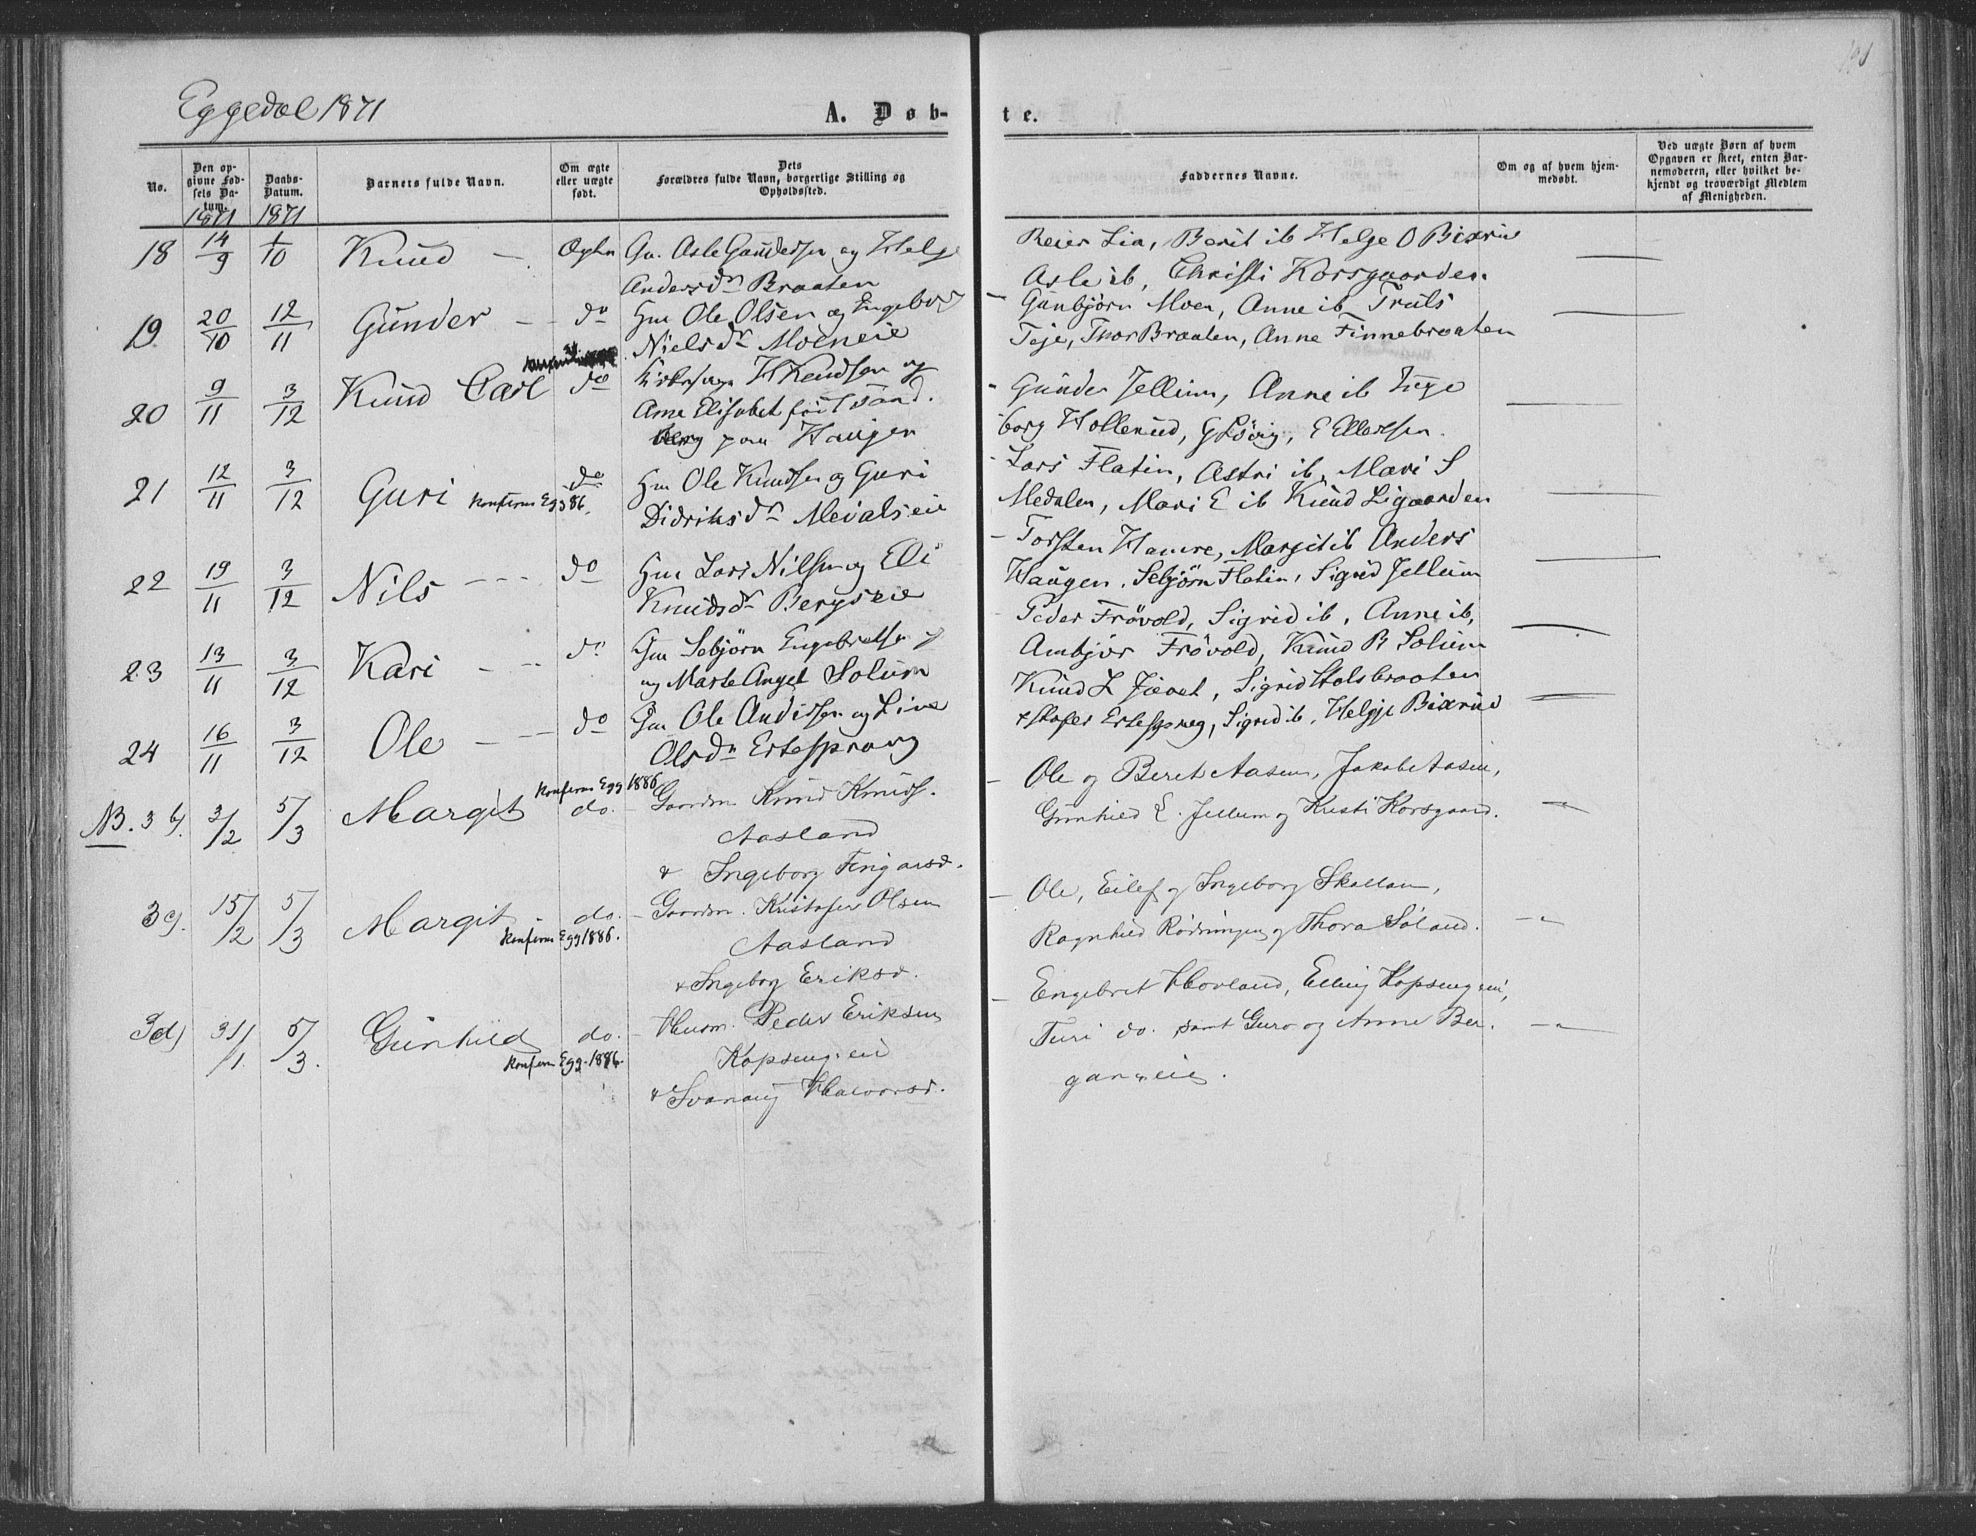 191
Eggedal 1871
A. Døb-
te.
No.
Den op-
givne Fød-
sels Da-
tum.
Daabs-
Datum.
Barnets fulde Navn.
Om ægte
eller uægte
født.
Dets
Forældres fulde Navn, borgerlige Stilling og
Opholdssted.
Faddernes Navne.
Om og af hvem hjem-
medøbt.
Ved uægte Børn af hvem
Opgaven er skeet, enten Bar-
nemoderen, eller hvilket be-
kjendt og troværdigt Medlem
af Menigheden.
1871 1871
18 14/9 1/10 Knud — Ægte Gm. Asle Gundersen og Helge
Andersdr Braaten
Reier Lia, Berit ib Helge O Bixrud
Asle ib, Christi Korsgaarden.
19 20/10 12/11 Gunder — do Hm Ole Olsen og Engebor
Nielsdr Moeneie
Gunbjörn Moen, Anne ib Truls
Teje, Thor Braaten, Anne Finnebraaten
20 9/11 3/12 Knud Carl do H Knudsen og
Anne Elisabet född Sand.
berg paa Haugen
Gunder Jellum, Anne ib Inge
borg Hollerud, E Ellefsen.
21 12/11 3/12 Guri Konfirm Egg 86. do Hm Ole Knudsen og Guri
Didriksdr Medalseie
Lars Flatin, Astri ib, Mari S
Medalen, Mari E ib Knud Ligaarden
22 19/11 3/12 Nils --- do Hm Lars Nilsen og Eli
Knudsdr Bergseie
Torsten Hamre, Margit ib Anders
Haugen, Sebjörn Flatin, Sigrid Jellum
23 13/11 3/12 Kari --- do Gm Sebjörn Engebretsen
og Marte Angel Solum
Peder Frövold, Sigrid ib, Anne ib,
Ambjör Frövold, Knud B Solum
24 16/11 3/12 Ole --- do Gm Ole Andersen og Live
Olsdr Ertesprang
Knud L, Sigrid Stolsbraaten
Ertesprang, Sigrid ib, Helge Bixrud
NB. 3 b). 3/2 5/3 Margit Konfirm Egg 1886 do. Gaardm Knud Knuds.
Aasland
& Ingeborg
Ole og Beret Aasen, Jakob Aasen,
Gunhild E. Jellum og Kristi Korsgaard.
3 c) 15/2 5/3 Margit - Konfirm Egg 1886. do. Gaardm. Kristofer Olsen
Aasland
& Ingeborg Eriksd.
Ole, Eilef og Ingeborg Skallan,
Ragnhild Rödningen og Thora Söland.
3d) 31/1. 5/3. Gunhild Konfirm Egg. 1886. do. Husm. Peder Eriksen
Kopsengeie
& Svanaug Halvorsd.
Engebret Hovland, Elling Kopsengeie,
Turi do. samt Guro og Anne Ber.
ganseie.